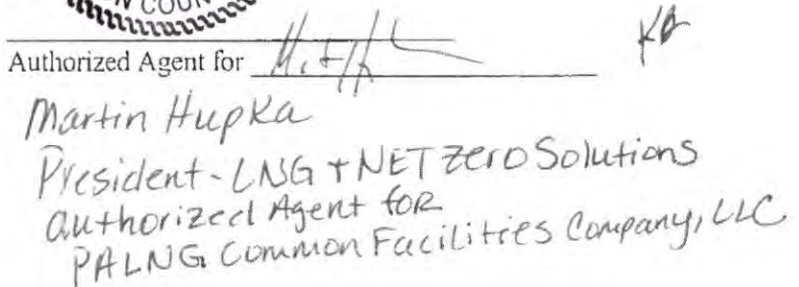 N COUN
Authorized Agent for
KB
Martin Hupka
President - LNG + NET Zero Solutions
authorized Agent for
PALNG Common Facilities Company, LLC